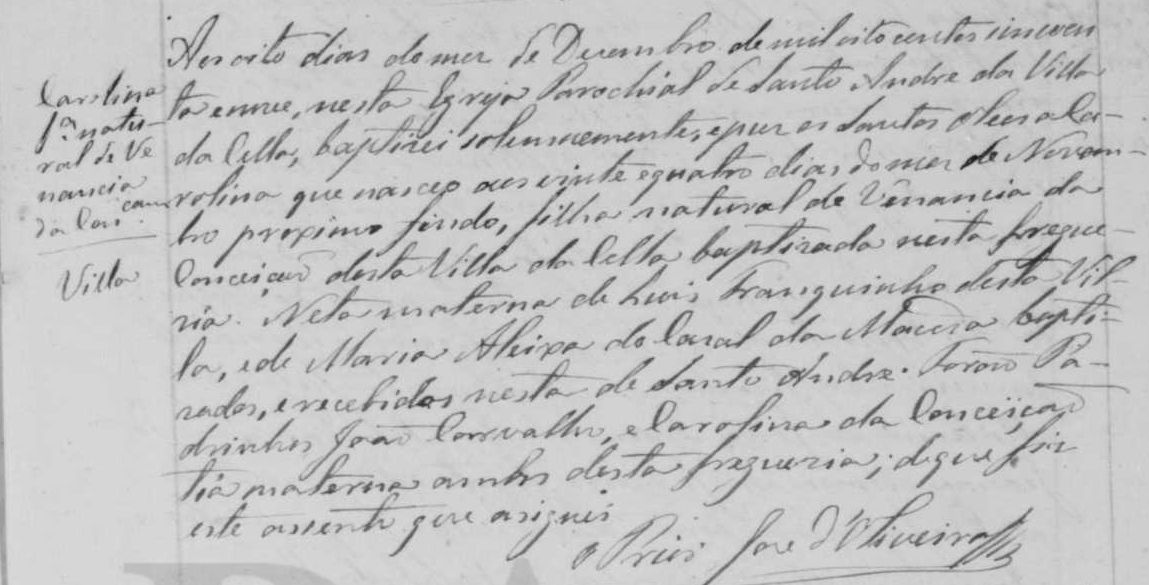 Carolina
fa natu-
ral de Ve
nancia
da Con
cam
Villa
Aos oito dias do mez de Dezembro de mil oito centos sincoen
ta e nove, nesta Egreja Parochial de Santo Andre da Villa
da Cella, baptizei solemnemente, e puz os Santos Oleos a Ca-
rolina que nasceo aos vinte e quatro dias do mez de Novem-
bro proximo findo, filha natural de Venancia da
Conceição desta Villa da Cella baptizada nesta fregue-
zia. Neta materna de Luis Franquinho desta Vil-
la, e de Maria Aleixa do Casal da Maceda bapti-
zados, e recebidos nesta de Santo Andre. Forão Pa-
drinhos João Carvalho, e Carolina da Conceição
tia materna ambos desta freguezia; de que fiz
este assento que asignei
O Prior Jose d'Oliveira